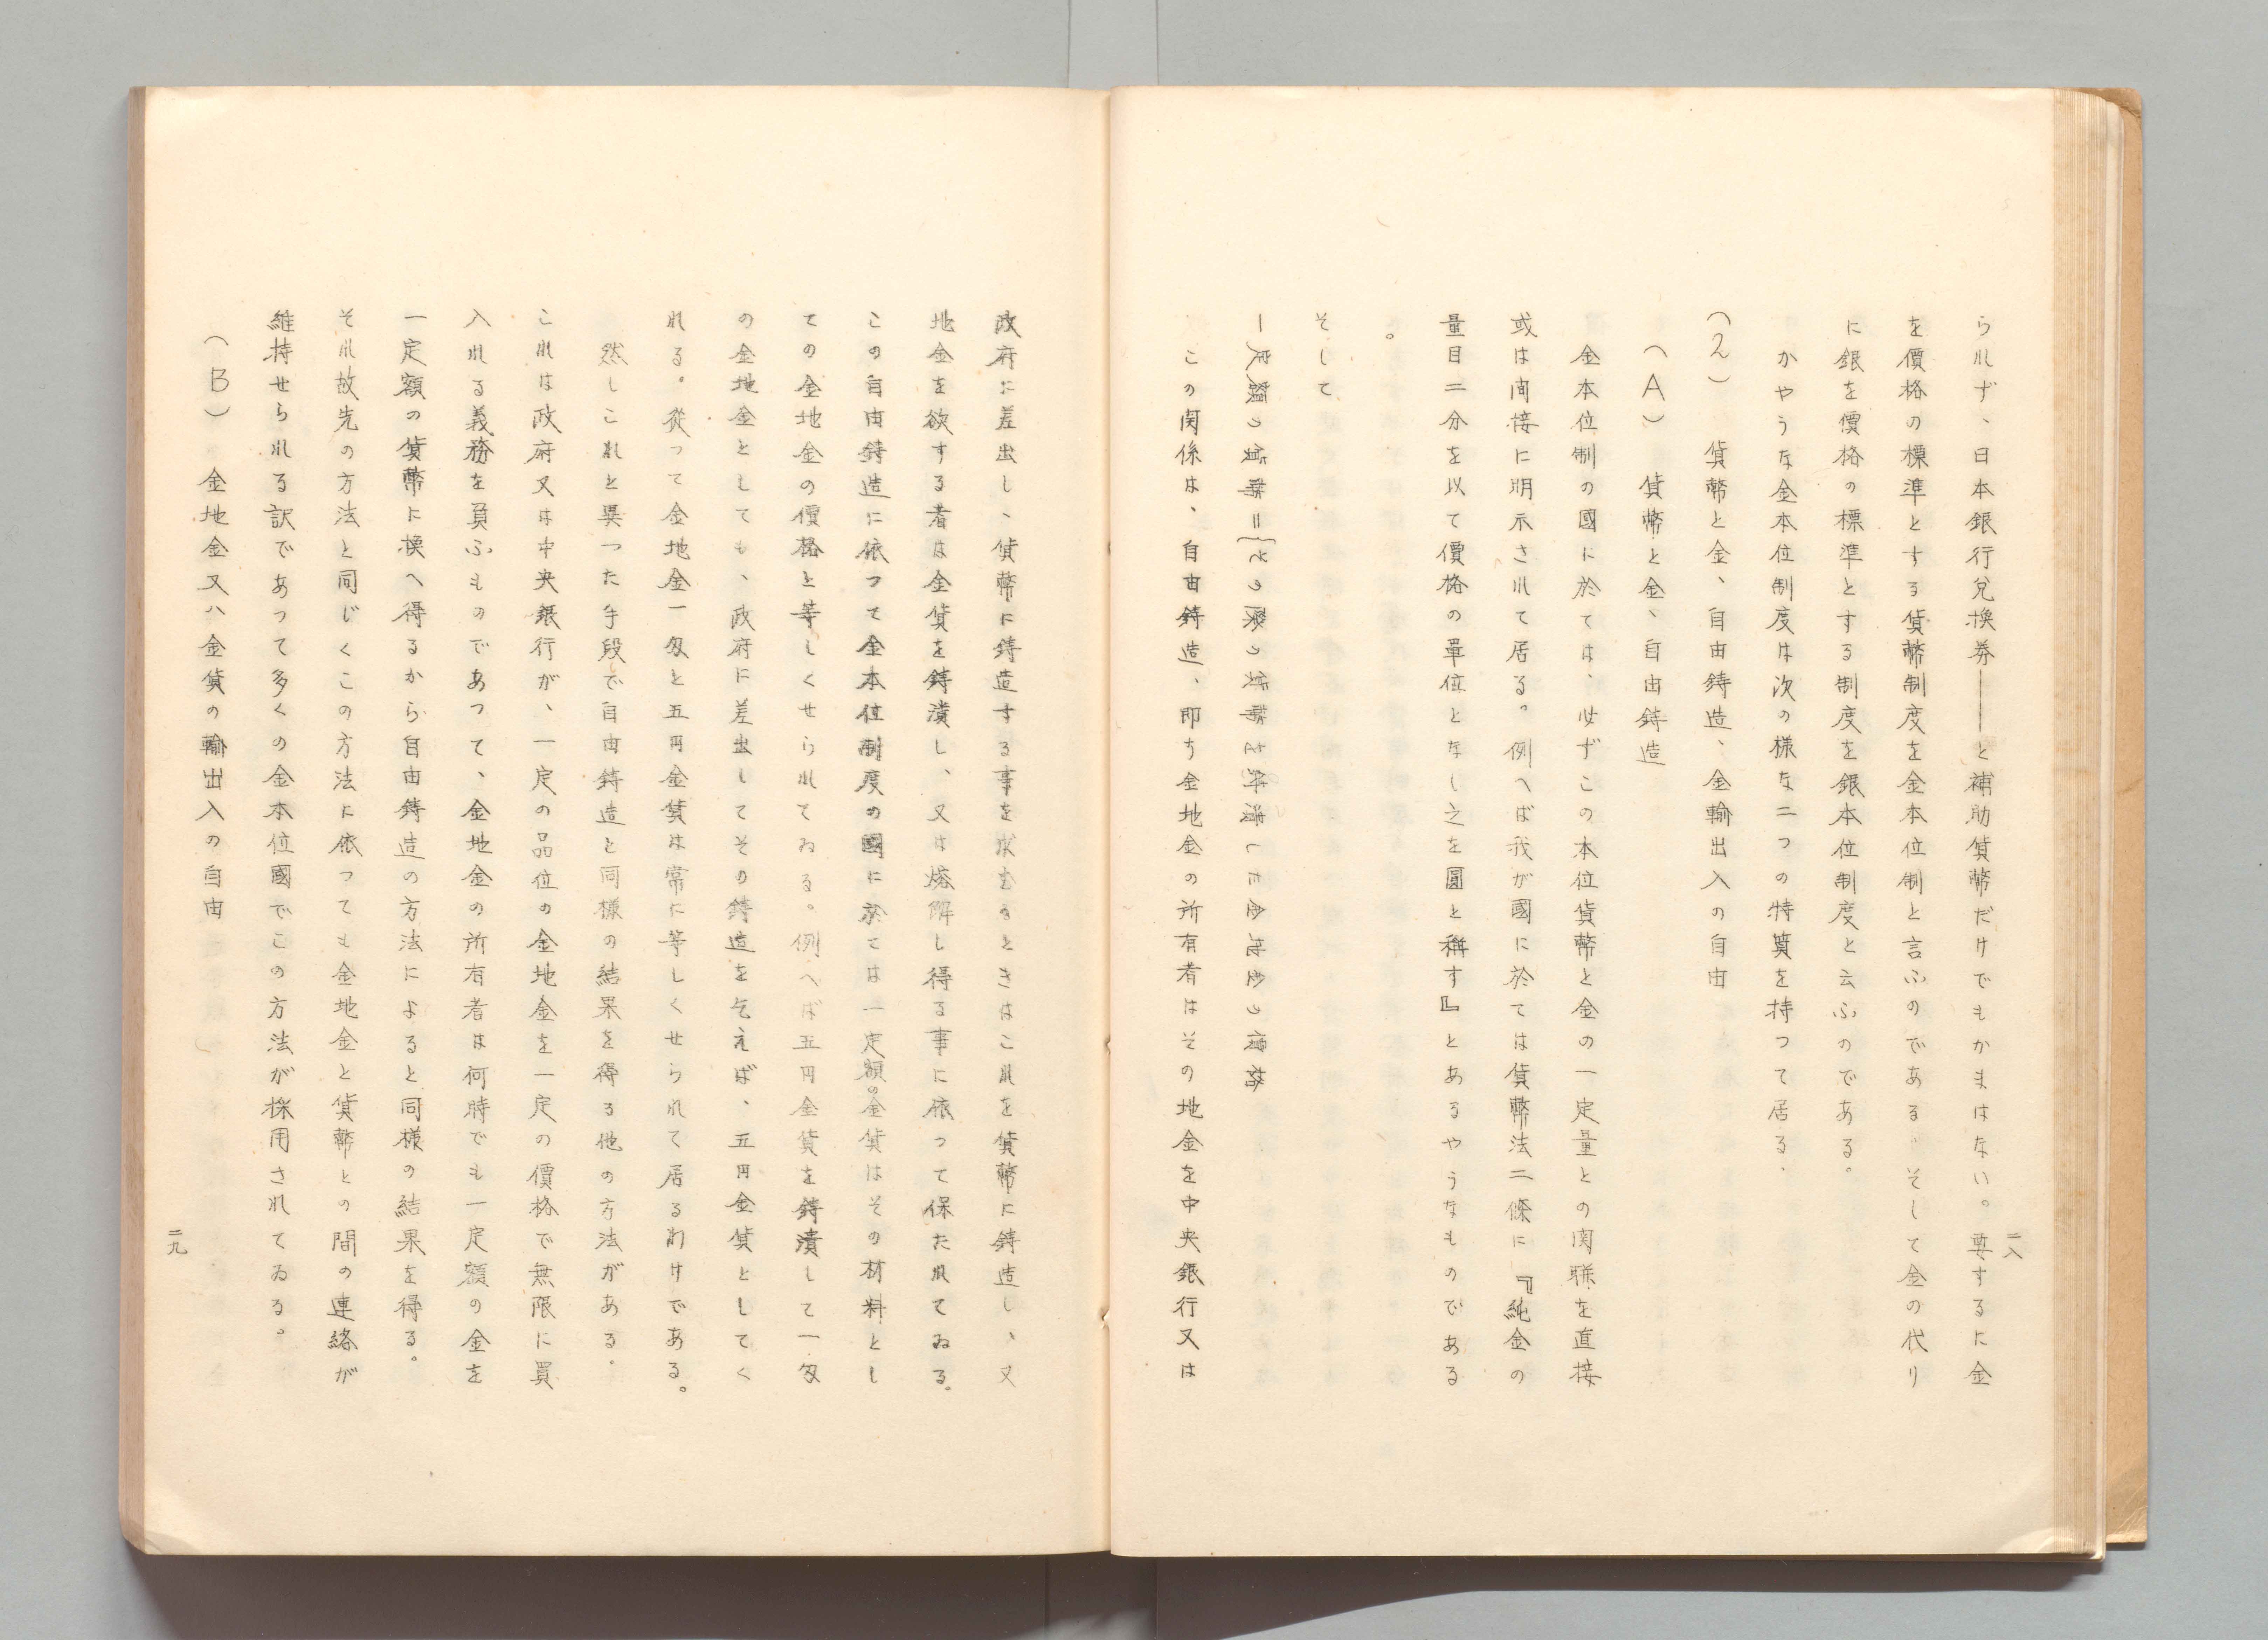 二八
られず、日本銀行兌換券――と補助貨幣だけでもかまはない。要するに金
を價格の標準とする貨幣制度を金本位制と言ふのである。そして金の代り
に銀を價格の標準とする制度を銀本位制度と云ふのである。
かやうな金本位制度は次の様な二つの特質を持つて居る、
(2) 貨幣と金、自由鋳造、金輸出入の自由
(A) 貨幣と金、自由鋳造
金本位制の國に於ては、必ずこの本位貨幣と金の一定量との関聯を直接
或は间接に明示されて居る。例へば我が國に於ては貨幣法二條に『純金の
量目二分を以て價格の單位となし之を圓と稱す』とあるやうなものである
。
そして
一定額の貨幣＝{その額の貨幣を鋳潰した金地金の価格
この関係は、自由鋳造、即ち金地金の所有者はその地金を中央銀行又は
政府に差出し、貨幣に鋳造する事を求むるときはこれを貨幣に鋳造し、又
地金を欲する者は金貨を鋳潰し、又は熔解し得る事に依つて保たれてゐる。
この自由鋳造に依つて金本位制度の國に於ては一定額の金貨はその材料とし
ての金地金の價格と等しくせられてゐる。例へば五円金貨を鋳潰して一匁
の金地金としても、政府に差出してその鋳造を乞えば、五円金貨としてく
れる。從つて金地金一匁と五円金貨は常に等しくせられて居るわけである。
然しこれと異つた手段で自由鋳造と同様の結果を得る他の方法がある。
これは政府又は中央銀行が、一定の品位の金地金を一定の價格で無限に買
入れる義務を負ふものであつて、金地金の所有者は何時でも一定額の金を
一定額の貨幣に換へ得るから自由鋳造の方法によると同様の結果を得る。
それ故先の方法と同じくこの方法に依つても金地金と貨幣との間の連絡が
維持せられる訳であつて多くの金本位國でこの方法が採用されてゐる。
(B) 金地金又ハ金貨の輸出入の自由
二九